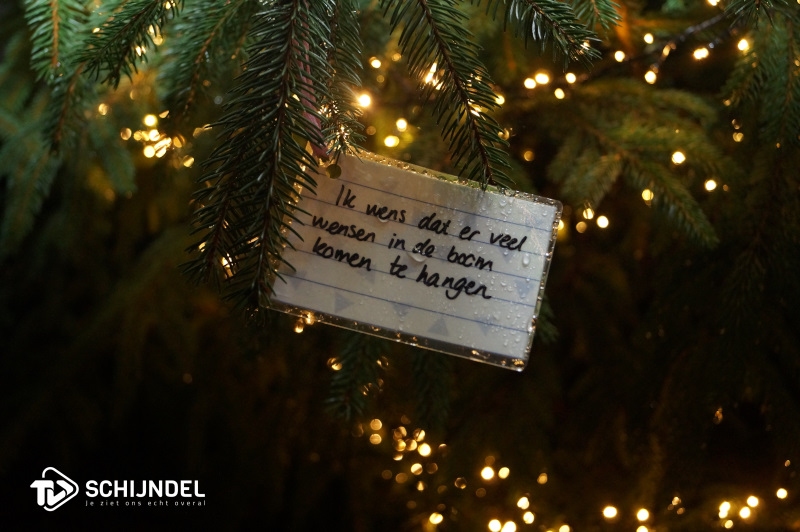 Ik wens dat er veel
wensen in de boom
komen te hangen
TV SCHIJNDEL
je ziet ons echt overal